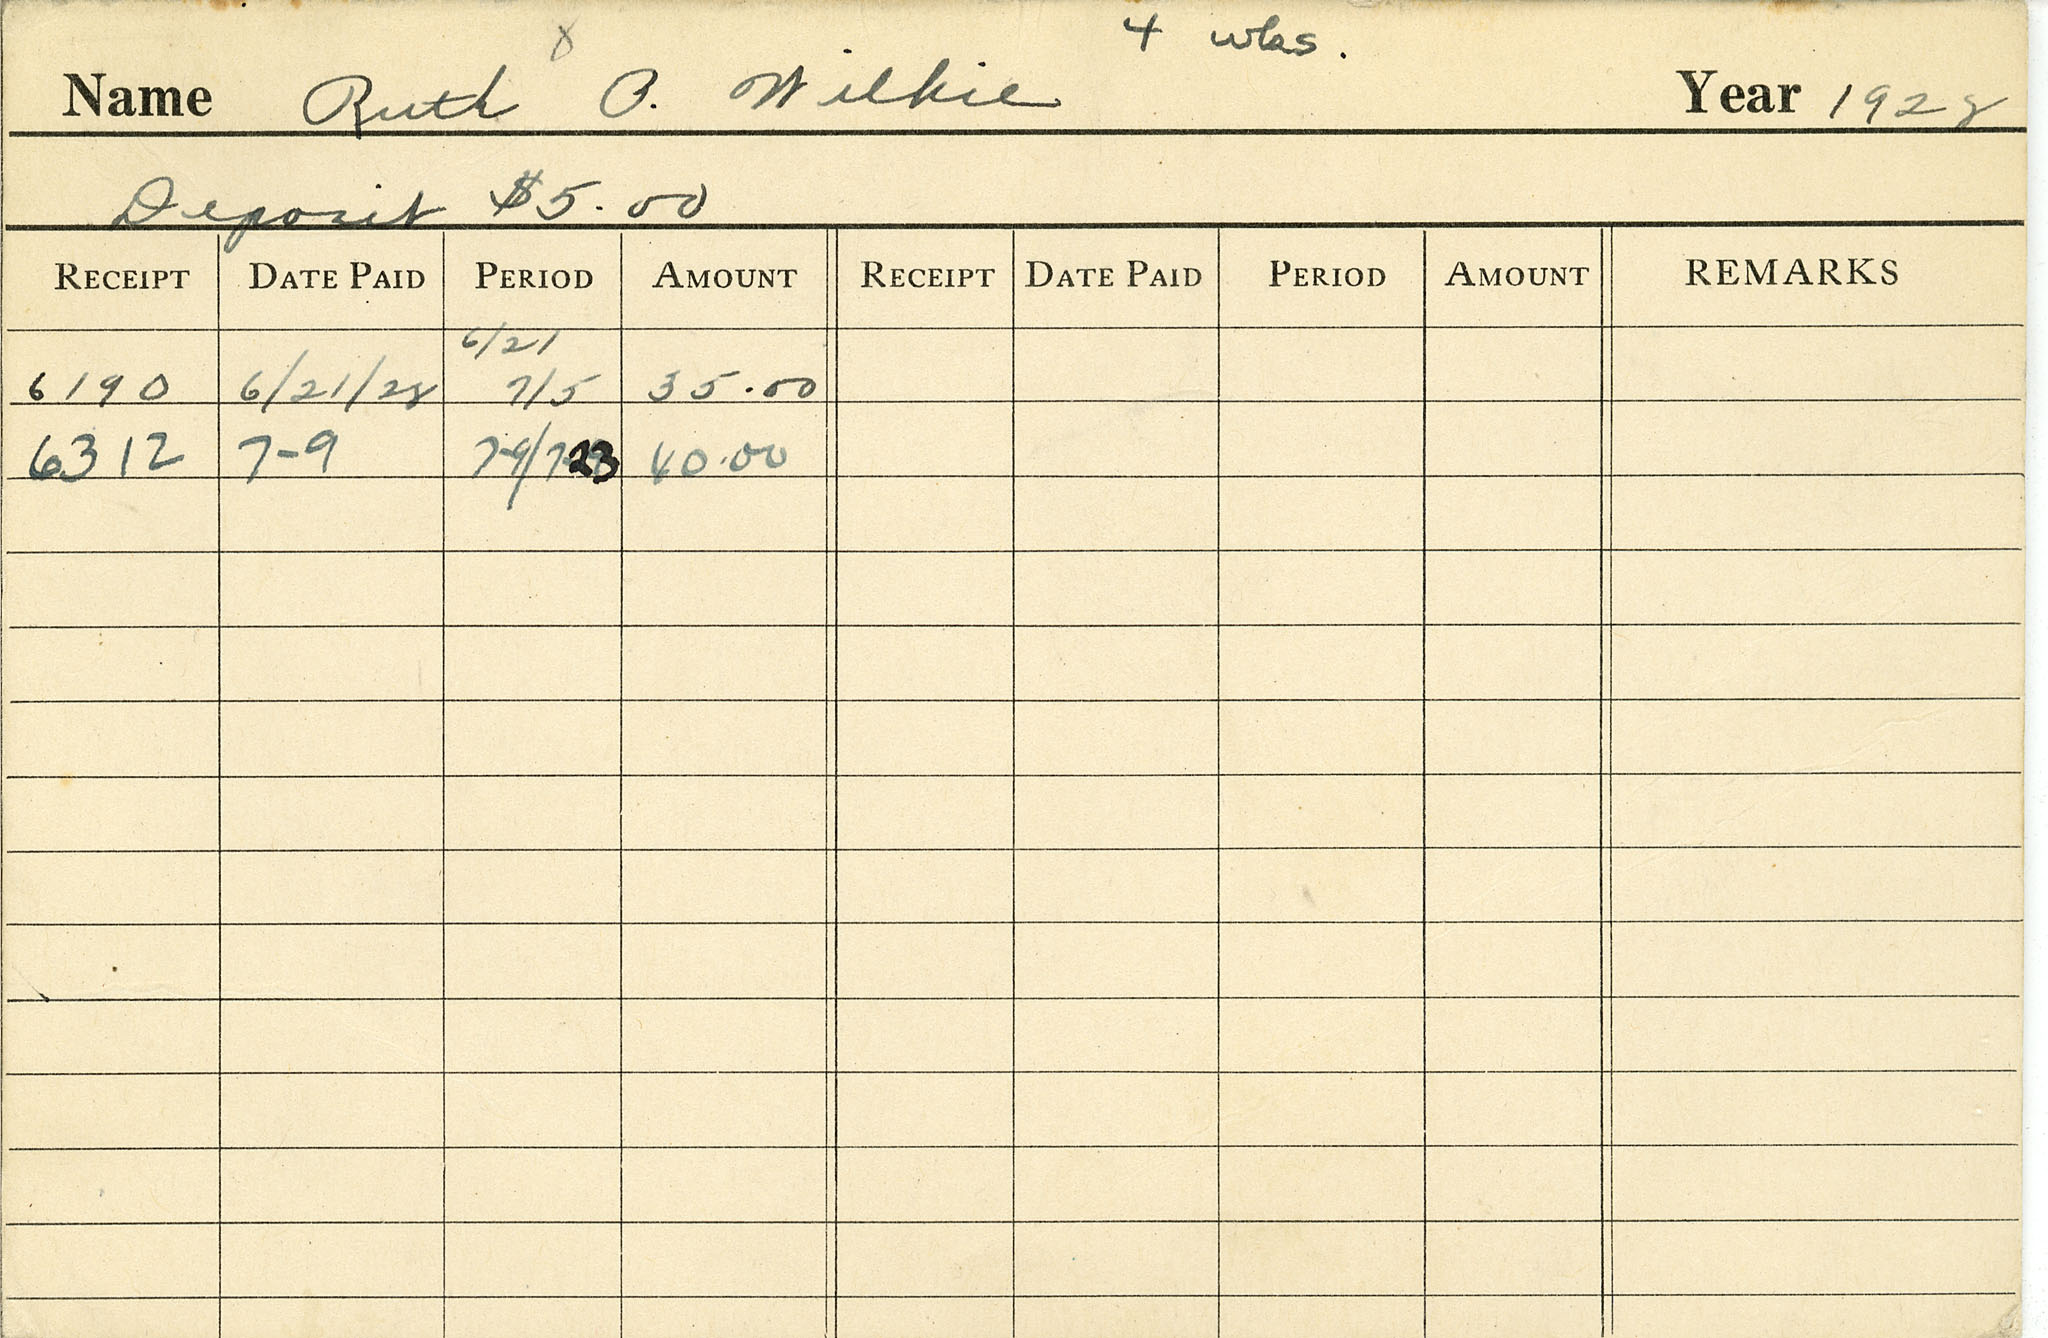 x 4 wks.
Name Ruth P. Wilkie Year 1928
Deposit $5.00
RECEIPT DATE PAID PERIOD AMOUNT RECEIPT DATE PAID PERIOD AMOUNT REMARKS
6/21
6190 6/21/28 7/5 35.00
6312 7-9 7-9/7-23 40.00